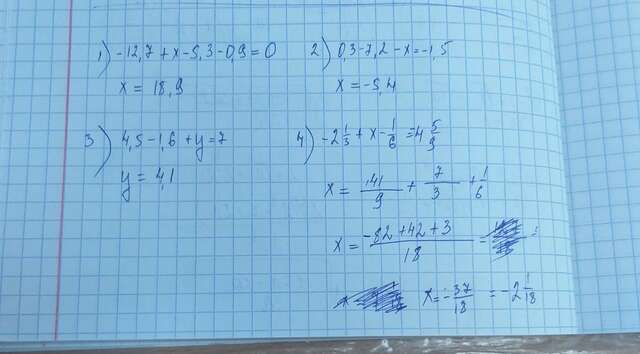 1) -12,7 + x - 5,3 - 0,9 = 0
x = 18,9
2) 0,3 - 7,2 - x = -1,5
x = -5,4
3) 4,5 - 1,6 + y = 7
y = 4,1
4) -2 1/3 + x - 1/6 = 4 5/9
x = 41/9 + 7/3 + 1/6
x = (-82 + 42 + 3)/18 = =
x = -37/18 = -2 1/18